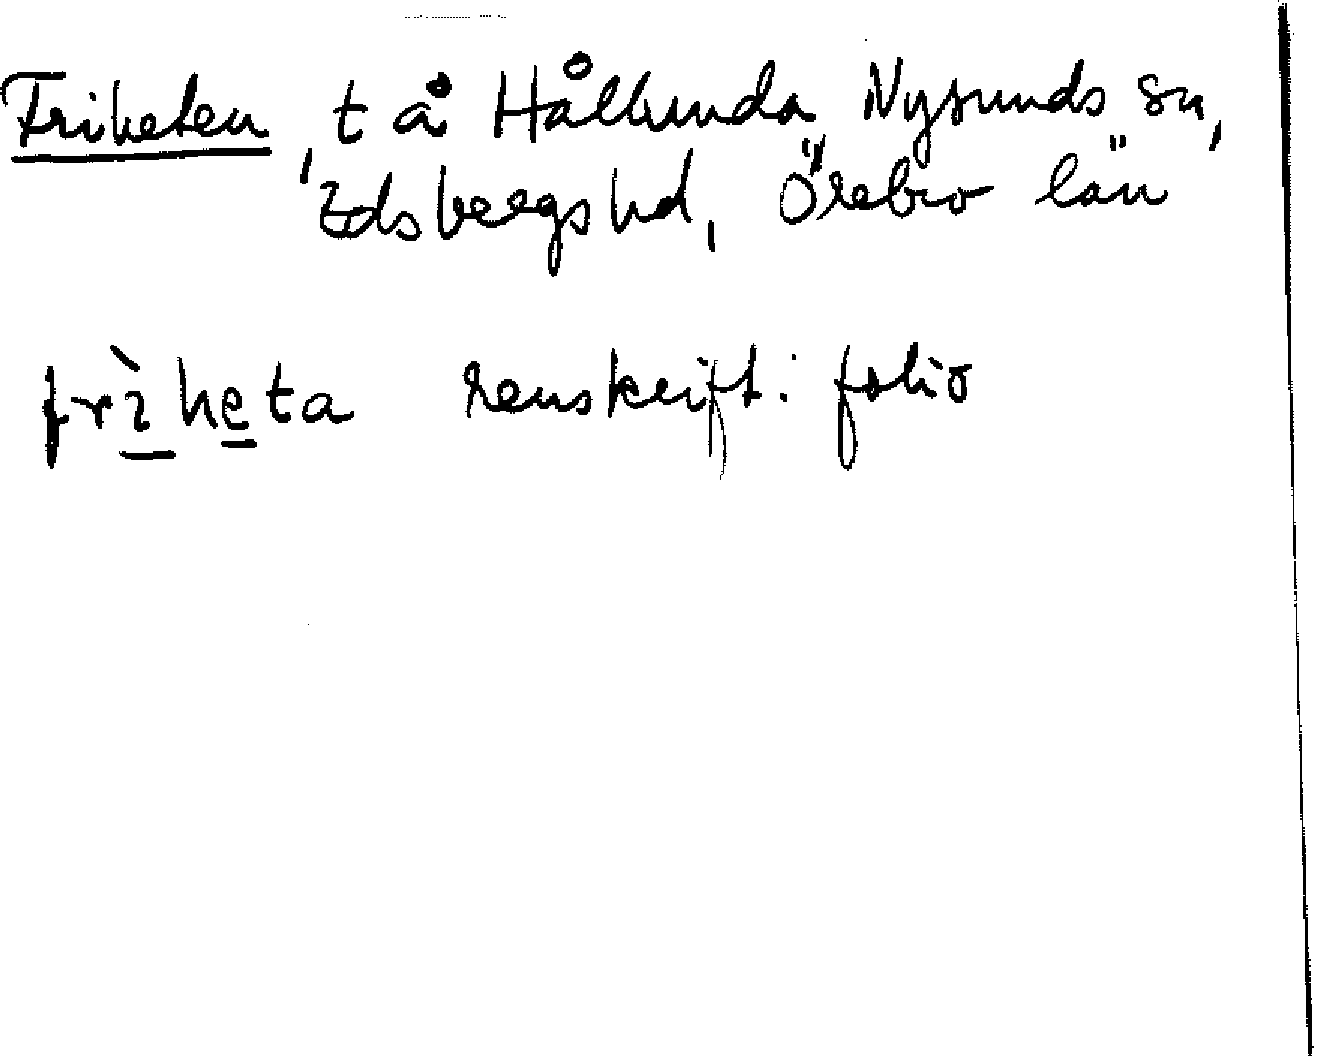 Friheten, t å Hållunda Nysunds sn,
Edsbergs hd, Örebro län
frìheta renskrift: folio